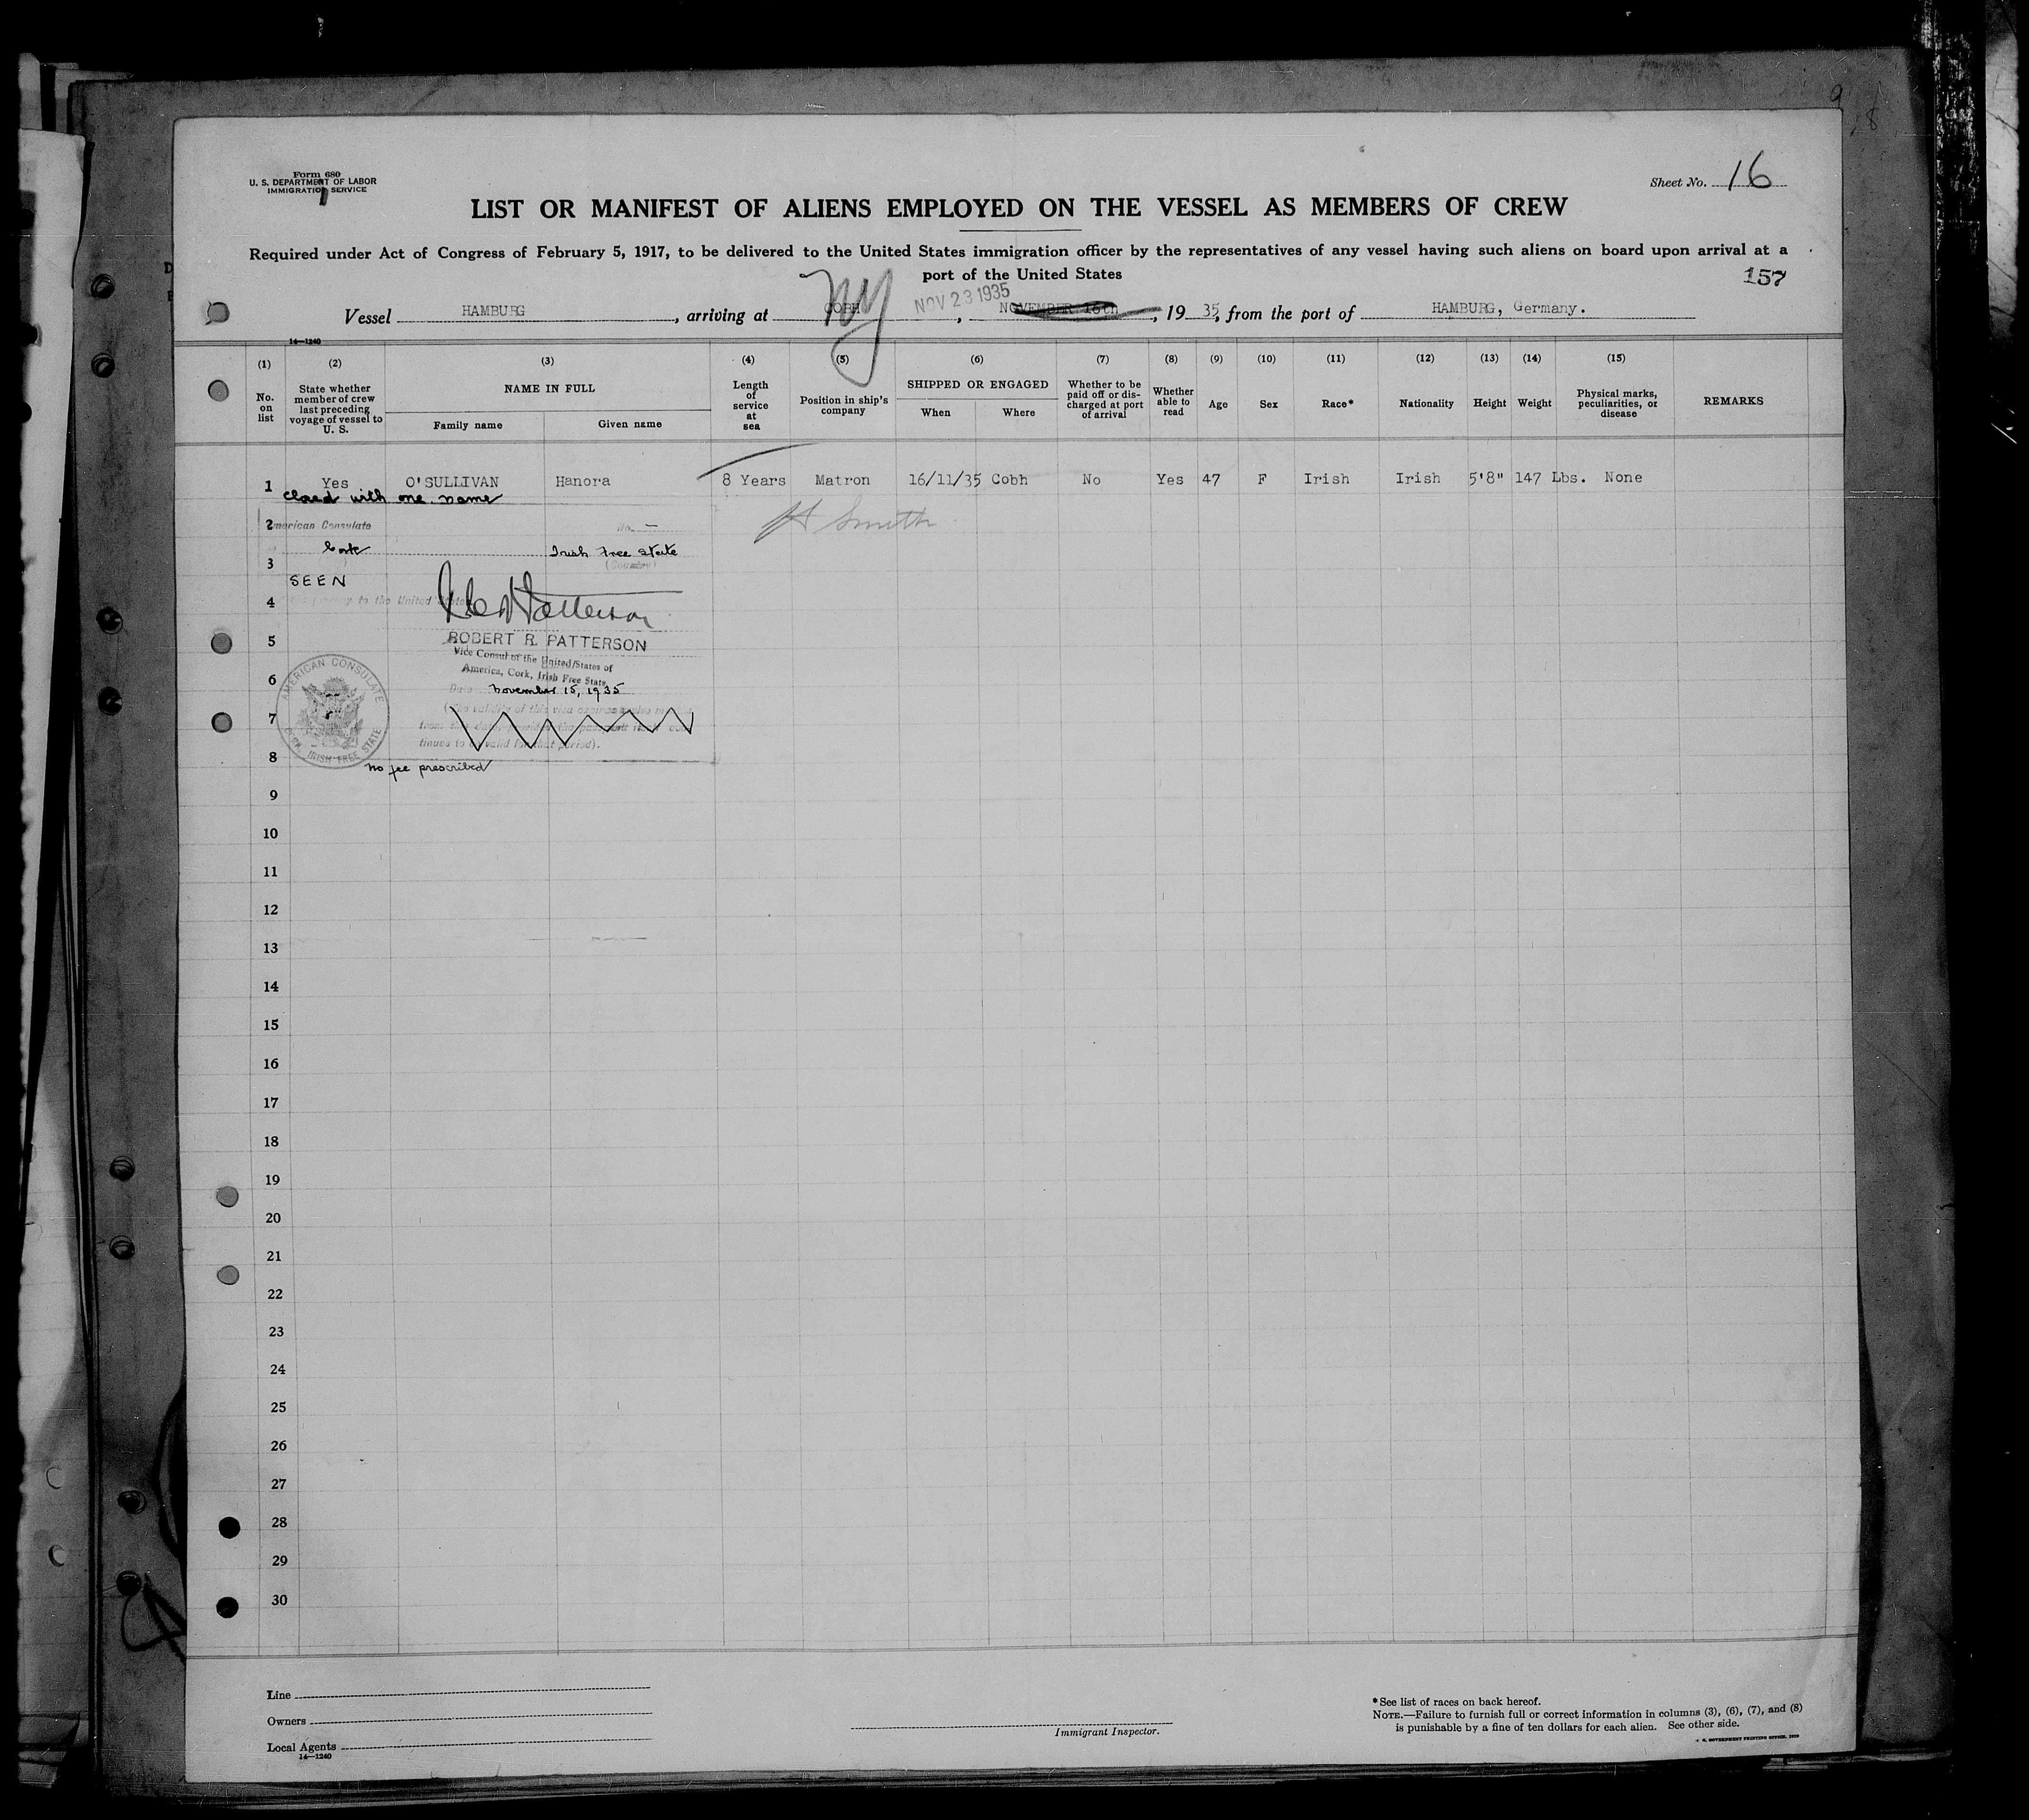 Form 680
U. S. DEPARTMENT OF LABOR
IMMIGRATION SERVICE
Sheet No. 16
LIST OR MANIFEST OF ALIENS EMPLOYED ON THE VESSEL AS MEMBERS OF CREW
Required under Act of Congress of February 5, 1917, to be delivered to the United States immigration officer by the representatives of any vessel having such aliens on board upon arrival at a
port of the United States
157
Vessel HAMBURG, arriving at COBH NY NOV 23 1935, NOVEMBER 16th, 1935, from the port of HAMBURG, Germany.
14—1240
(1) (2) (3) (4) (5) (6) (7) (8) (9) (10) (11) (12) (13) (14) (15)
No. on list
State whether member of crew last preceding voyage of vessel to U. S.
NAME IN FULL
Family name
Given name
Length of service at sea
Position in ship's company
SHIPPED OR ENGAGED
When
Where
Whether to be paid off or discharged at port of arrival
Whether able to read
Age
Sex
Race*
Nationality
Height
Weight
Physical marks, peculiarities, or disease
REMARKS
1 Yes O'SULLIVAN Hanora 8 Years Matron 16/11/35 Cobh No Yes 47 F Irish Irish 5'8" 147 Lbs. None
closed with one name
2 American Consulate No. —
H Smith
Cork Irish Free State
3 (Country)
SEEN
4 to the United States
5 ROBERT R. PATTERSON
Vice Consul of the United States of
America, Cork, Irish Free State
6 Date November 15, 1935
AMERICAN CONSULATE
CORK, IRISH FREE STATE
7 (The validity of this visa expires twelve months
from this date, provided the passport itself con-
tinues to be valid for that period).
8
no fee prescribed
9
10
11
12
13
14
15
16
17
18
19
20
21
22
23
24
25
26
27
28
29
30
Line
Owners
Local Agents
14—1240
Immigrant Inspector.
*See list of races on back hereof.
NOTE.—Failure to furnish full or correct information in columns (3), (6), (7), and (8)
is punishable by a fine of ten dollars for each alien. See other side.
U. S. GOVERNMENT PRINTING OFFICE